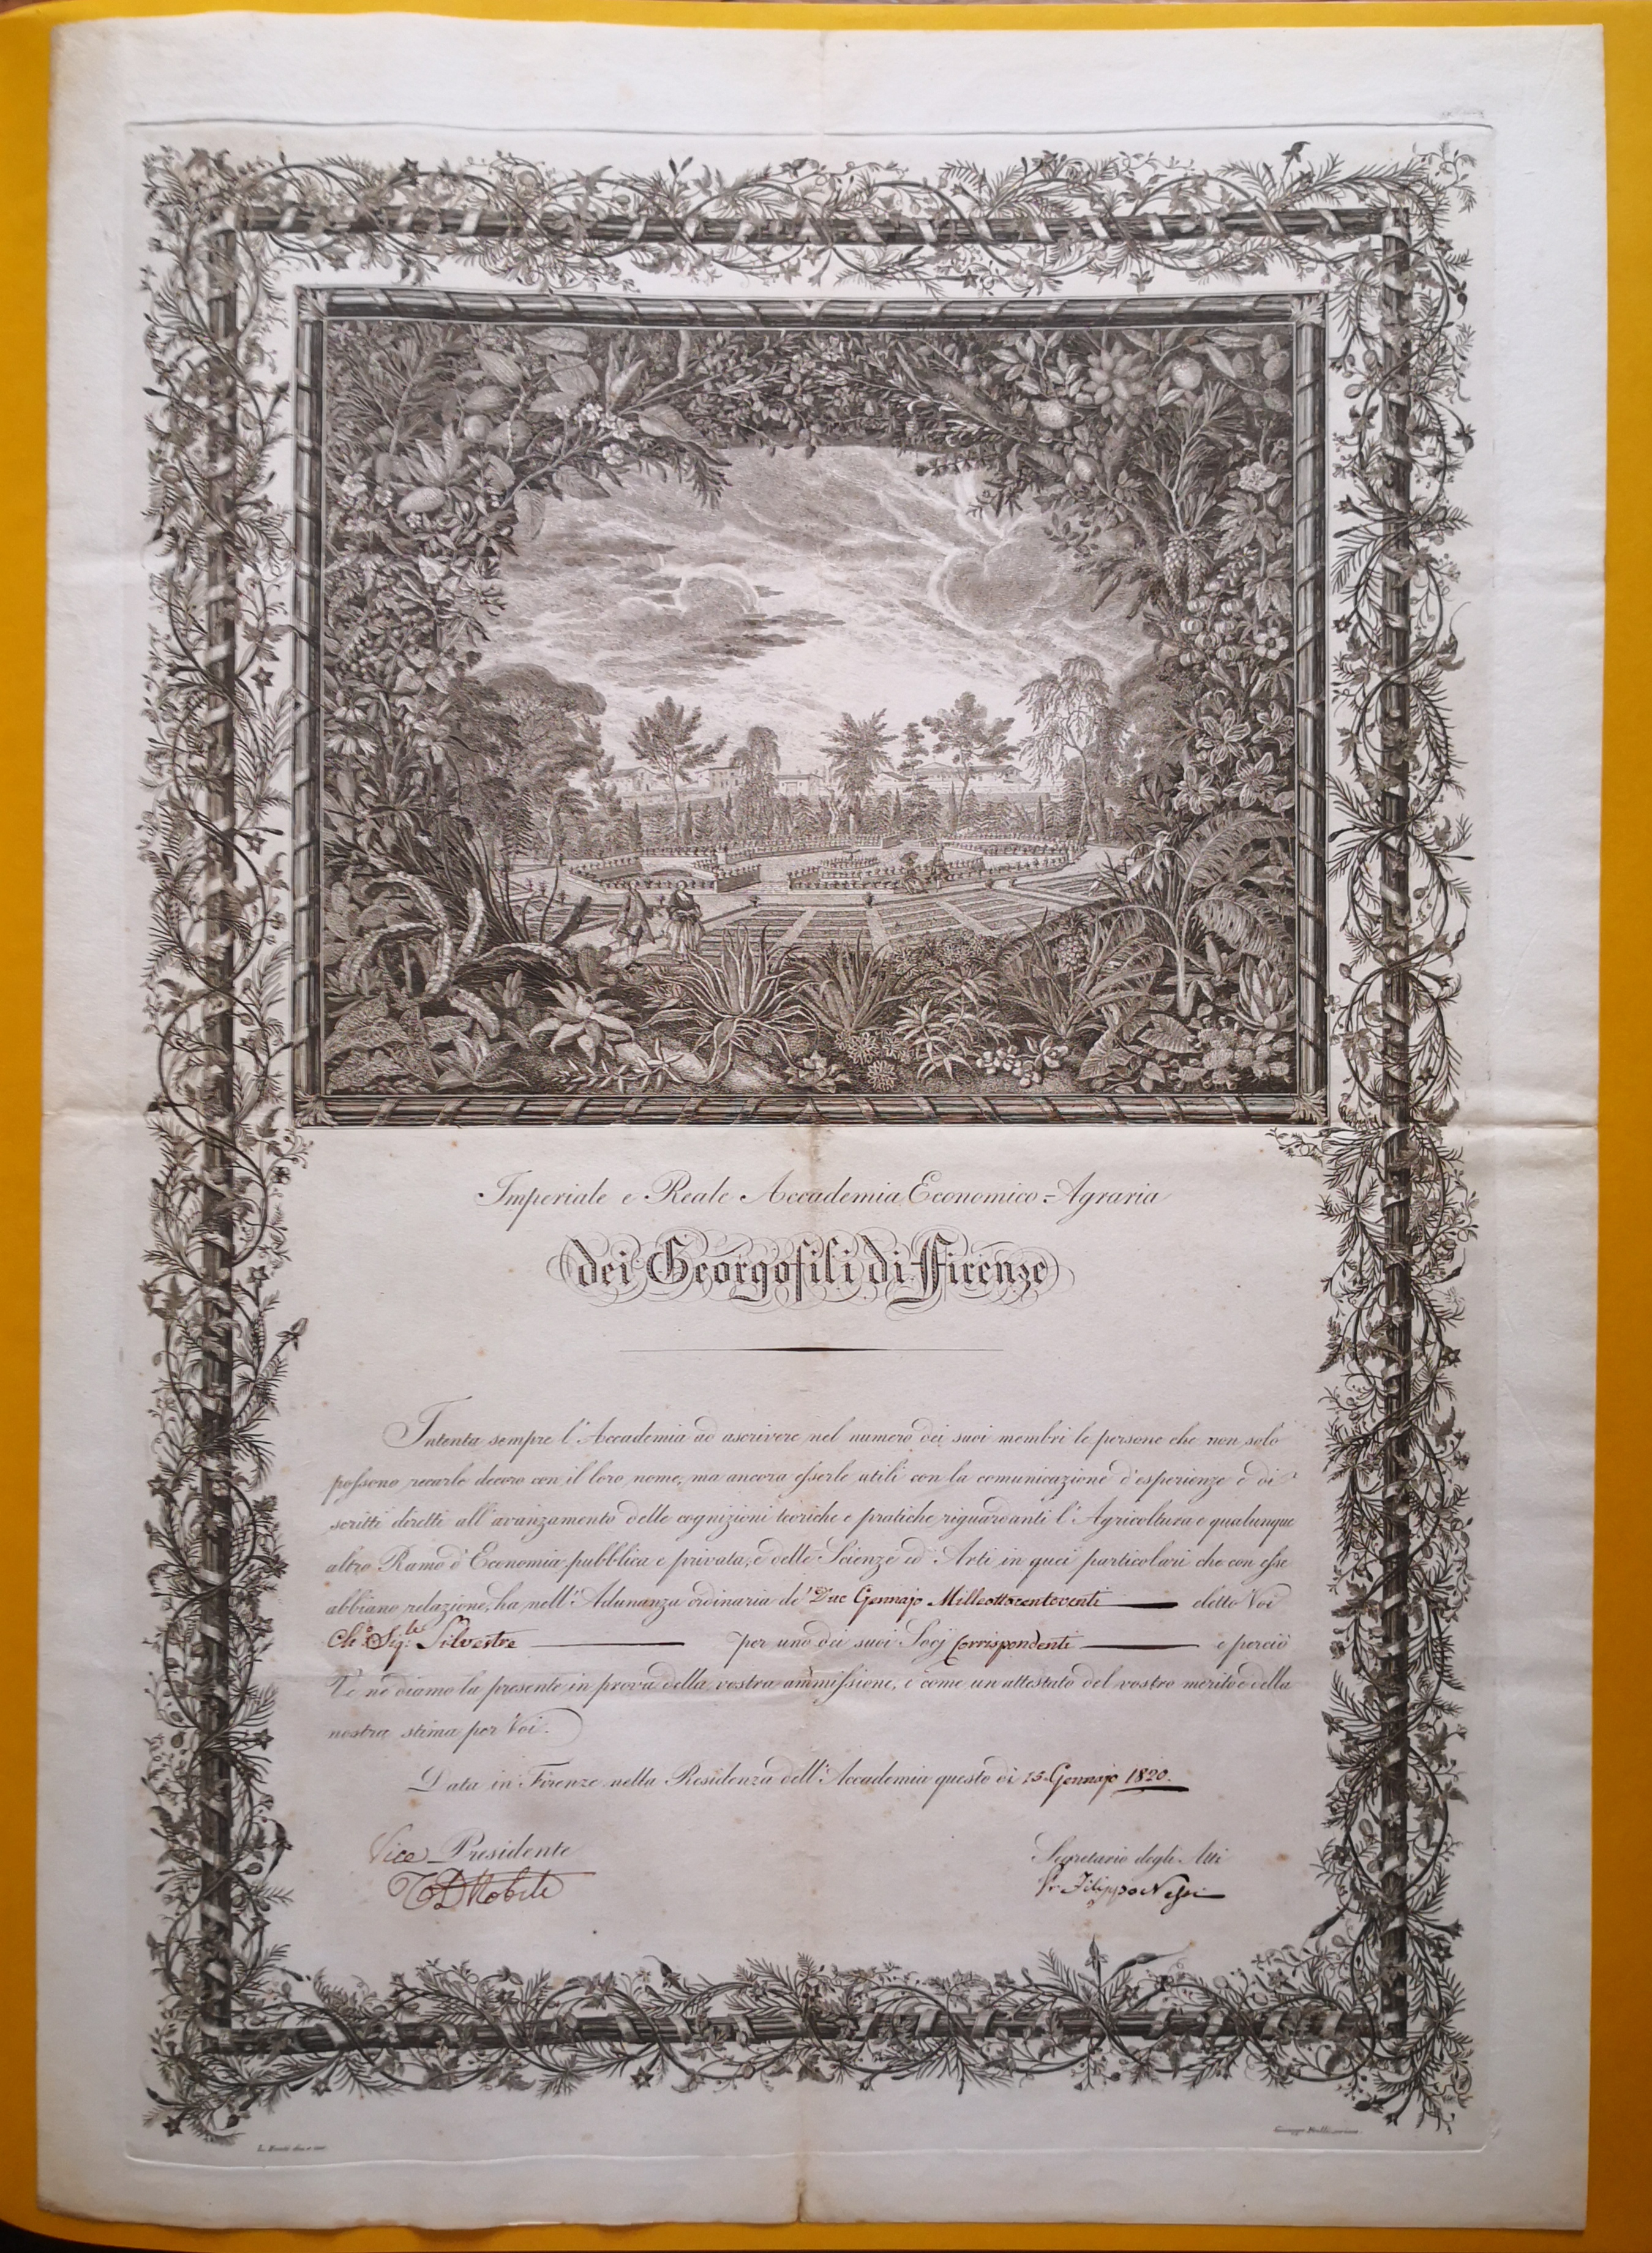 Imperiale e Reale Accademia Economico=Agraria
dei Georgofili di Firenze
Intenta sempre l'Accademia ad ascrivere nel numero dei suoi membri le persone che non solo
possono recarle decoro con il loro nome, ma ancora esserle utili con la comunicazione d'esperienze e di
scritti diretti all'avanzamento delle cognizioni teoriche e pratiche riguardanti l'Agricoltura e qualunque
altro Ramo d'Economia pubblica e privata, e delle Scienze ed Arti in quei particolari che con esse
abbiano relazione, ha nell'Adunanza ordinaria de' Due Gennajo Milleottocentoventi eletto Voi
Ch.º Sig.re Silvestre per uno dei suoi Socj Corrispondenti e perciò
Ve ne diamo la presente in prova della vostra ammissione, e come un attestato del vostro merito e della
nostra stima per Voi.
Data in Firenze nella Residenza dell'Accademia questo dì 15 Gennajo 1820.
Vice Presidente
Segretario degli Atti
Filippo
L. inc.
Giuseppe